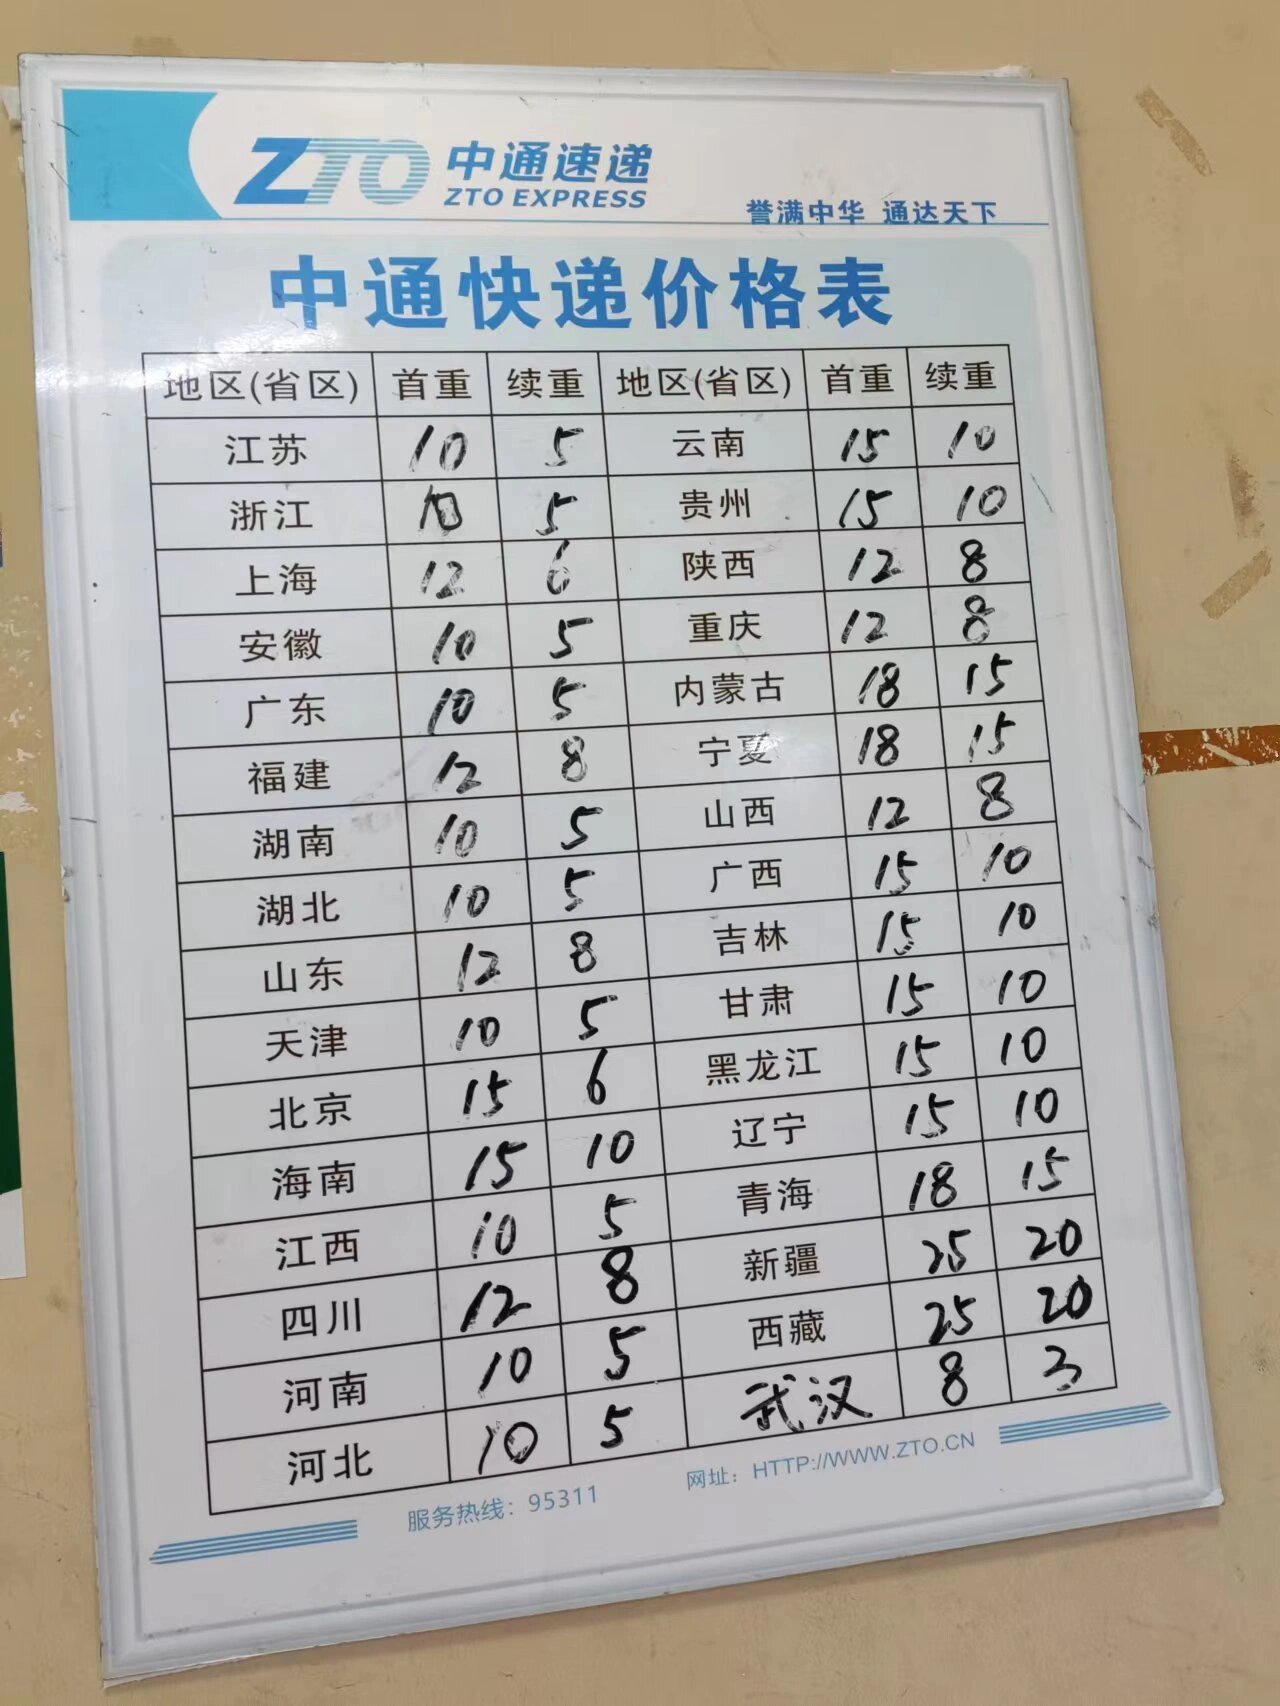 ZTO 中通速递
ZTO EXPRESS
誉满中华 通达天下
中通快递价格表
地区(省区) 首重 续重 地区(省区) 首重 续重
江苏 10 5 云南 15 10
浙江 10 5 贵州 15 10
上海 12 6 陕西 12 8
安徽 10 5 重庆 12 8
广东 10 5 内蒙古 18 15
福建 12 8 宁夏 18 15
湖南 10 5 山西 12 8
湖北 10 5 广西 15 10
山东 12 8 吉林 15 10
天津 10 5 甘肃 15 10
北京 15 6 黑龙江 15 10
海南 15 10 辽宁 15 10
江西 10 5 青海 18 15
四川 12 8 新疆 25 20
河南 10 5 西藏 25 20
河北 10 5 武汉 8 3
服务热线：95311 网址：HTTP://WWW.ZTO.CN